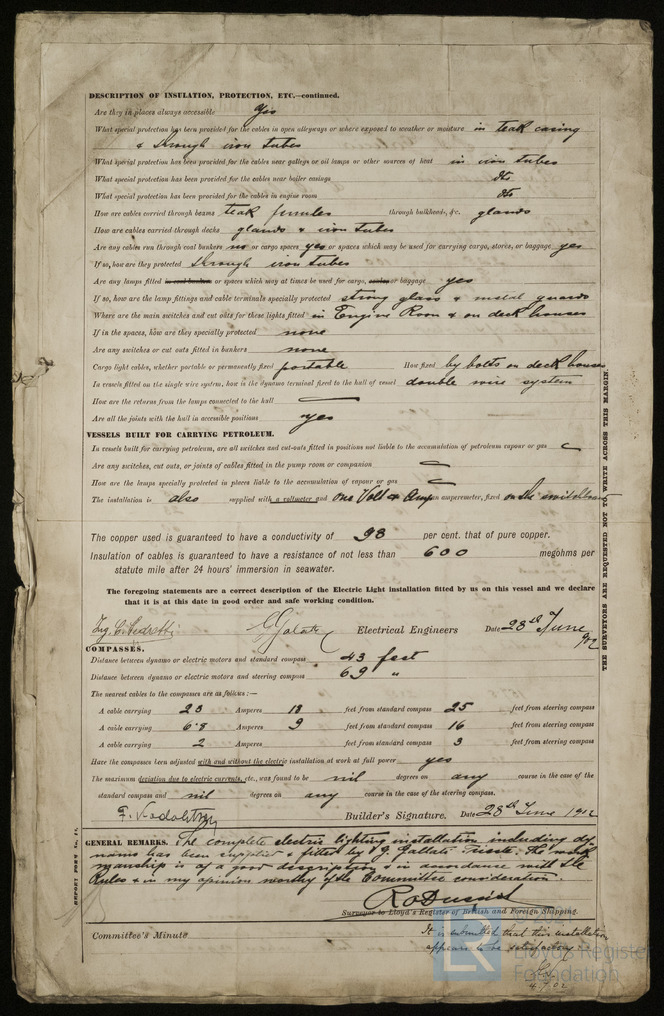 DESCRIPTION OF INSULATION, PROTECTION, ETC.—continued.
Are they in places always accessible Yes
What special protection has been provided for the cables in open alleyways or where exposed to weather or moisture in teak casing
& through iron tubes
What special protection has been provided for the cables near galleys or oil lamps or other sources of heat in iron tubes
What special protection has been provided for the cables near boiler casings do
What special protection has been provided for the cables in engine room do
How are cables carried through beams teak ferrules through bulkheads, &c. glands
How are cables carried through decks glands & iron tubes
Are any cables run through coal bunkers no or cargo spaces yes or spaces which may be used for carrying cargo, stores, or baggage yes
If so, how are they protected through iron tubes
Are any lamps fitted in coal bunkers or spaces which may at times be used for cargo, coals or baggage yes
If so, how are the lamp fittings and cable terminals specially protected strong glass & metal guards
Where are the main switches and cut outs for these lights fitted in Engine Room & on deck houses
If in the spaces, how are they specially protected none
Are any switches or cut outs fitted in bunkers none
Cargo light cables, whether portable or permanently fixed portable How fixed by bolts on deck houses
In vessels fitted on the single wire system, how is the dynamo terminal fixed to the hull of vessel double wire system
How are the returns from the lamps connected to the hull
Are all the joints with the hull in accessible positions yes
VESSELS BUILT FOR CARRYING PETROLEUM.
In vessels built for carrying petroleum, are all switches and cut-outs fitted in positions not liable to the accumulation of petroleum vapour or gas
Are any switches, cut outs, or joints of cables fitted in the pump room or companion
How are the lamps specially protected in places liable to the accumulation of vapour or gas
The installation is also supplied with a voltmeter and one Volt & Amp an amperemeter, fixed on the switchboard
The copper used is guaranteed to have a conductivity of 98 per cent. that of pure copper.
Insulation of cables is guaranteed to have a resistance of not less than 600 megohms per
statute mile after 24 hours' immersion in seawater.
The foregoing statements are a correct description of the Electric Light installation fitted by us on this vessel and we declare
that it is at this date in good order and safe working condition.
Electrical Engineers Date 28th June
902
COMPASSES.
Distance between dynamo or electric motors and standard compass 43 feet
Distance between dynamo or electric motors and steering compass 69 "
The nearest cables to the compasses are as follows:—
A cable carrying 23 Amperes 18 feet from standard compass 25 feet from steering compass
A cable carrying 6·8 Amperes 9 feet from standard compass 16 feet from steering compass
A cable carrying 2 Amperes feet from standard compass 3 feet from steering compass
Have the compasses been adjusted with and without the electric installation at work at full power yes
The maximum deviation due to electric currents, etc., was found to be nil degrees on any course in the case of the
standard compass and nil degrees on any course in the case of the steering compass.
Builder's Signature. Date 28th June 1902
GENERAL REMARKS. The complete electric lighting installation including dy
namos has been supplied & fitted by Trieste, the work
manship is of a good description & in accordance with the
Rules & in my opinion worthy of the Committee consideration.
Surveyor to Lloyd's Register of British and Foreign Shipping.
Committee's Minute
It is submitted that this installation
appears to be satisfactory.
4.7.02
THE SURVEYORS ARE REQUESTED NOT TO WRITE ACROSS THIS MARGIN
LR
Lloyd's Register
Foundation